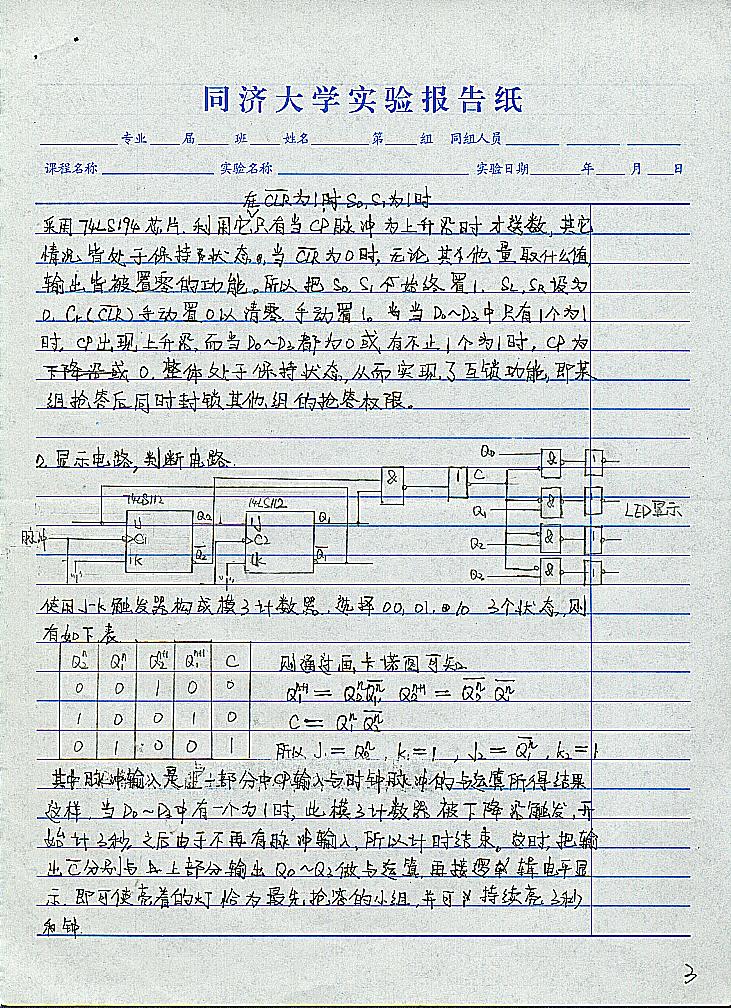 同济大学实验报告纸
专业 届 班 姓名 第 组 同组人员
课程名称 实验名称 实验日期 年 月 日
在CLR为1时 S₀, S₁为1时
采用74LS194芯片, 利用它只有当CP脉冲为上升沿时才送数, 其它
情况皆处于保持状态。当CLR为0时, 无论其他量取什么值,
输出皆被置零的功能。所以把S₀, S₁始终置1. SL, SR设为
0. Cr(CLR)手动置0以清零, 手动置1。当D₀~D₃中只有1个为1
时, CP出现上升沿, 而当D₀~D₃都为0或有不止1个为1时, CP为
下降沿或0. 整体处于保持状态, 从而实现了互锁功能, 即某
组抢答后同时封锁其他组的抢答权限。
2. 显示电路, 判断电路.
74LS112 74LS112 & 1 C
脉冲 1J C1 1K Q₂ Q̄₂ "1" 1J C2 1K Q₁ Q̄₁ "1"
Q₀ & 1
Q₁ & 1 LED显示
Q₂ & 1
Q₃ & 1
使用J-K触发器构成模3计数器. 选择00, 01, 10 3个状态, 则
有如下表
Q₂ⁿ Q₁ⁿ Q₂ⁿ⁺¹ Q₁ⁿ⁺¹ C
0 0 1 0 0
1 0 0 1 0
0 1 0 0 1
则通过画卡诺图可知
Q₁ⁿ⁺¹ = Q₂ⁿ Q̄₁ⁿ, Q₂ⁿ⁺¹ = Q̄₂ⁿ Q̄₁ⁿ
C = Q₁ⁿ Q̄₂ⁿ
所以 J₁ = Q₂ⁿ, K₁ = 1, J₂ = Q̄₁ⁿ, K₂ = 1
其中脉冲输入是上一部分中CP输入与时钟脉冲的与运算所得结果
这样, 当D₀~D₃中有一个为1时, 此模3计数器被下降沿触发, 开
始计3秒, 之后由于不再有脉冲输入, 所以计时结束。这时, 把输
出C̄分别与上部分输出Q₀~Q₃做与运算, 再接逻辑电平显
示. 即可使亮着的灯恰为最先抢答的小组, 并可持续亮3秒
钟.
3